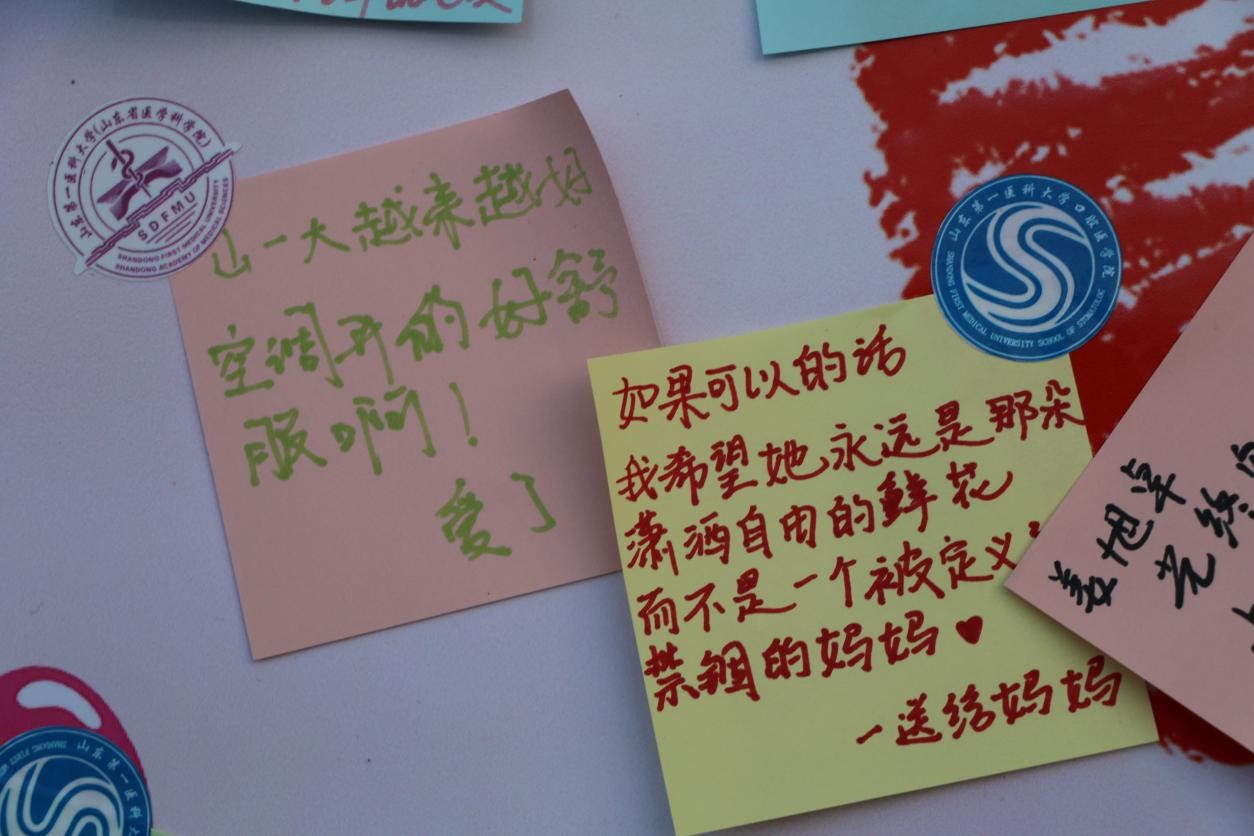 山东第一医科大学(山东省医学科学院)
SDFMU
SHANDONG FIRST MEDICAL UNIVERSITY
SHANDONG ACADEMY OF MEDICAL SCIENCES
山一大越来越好
空调开的好舒
服啊!
爱了
山东第一医科大学口腔医学院
SHANDONG FIRST MEDICAL UNIVERSITY SCHOOL OF STOMATOLOG
如果可以的话
我希望她永远是那朵
潇洒自由的鲜花
而不是一个被定义
禁锢的妈妈♥
一送给妈妈
山东第一医科
SHANDONG FIRST